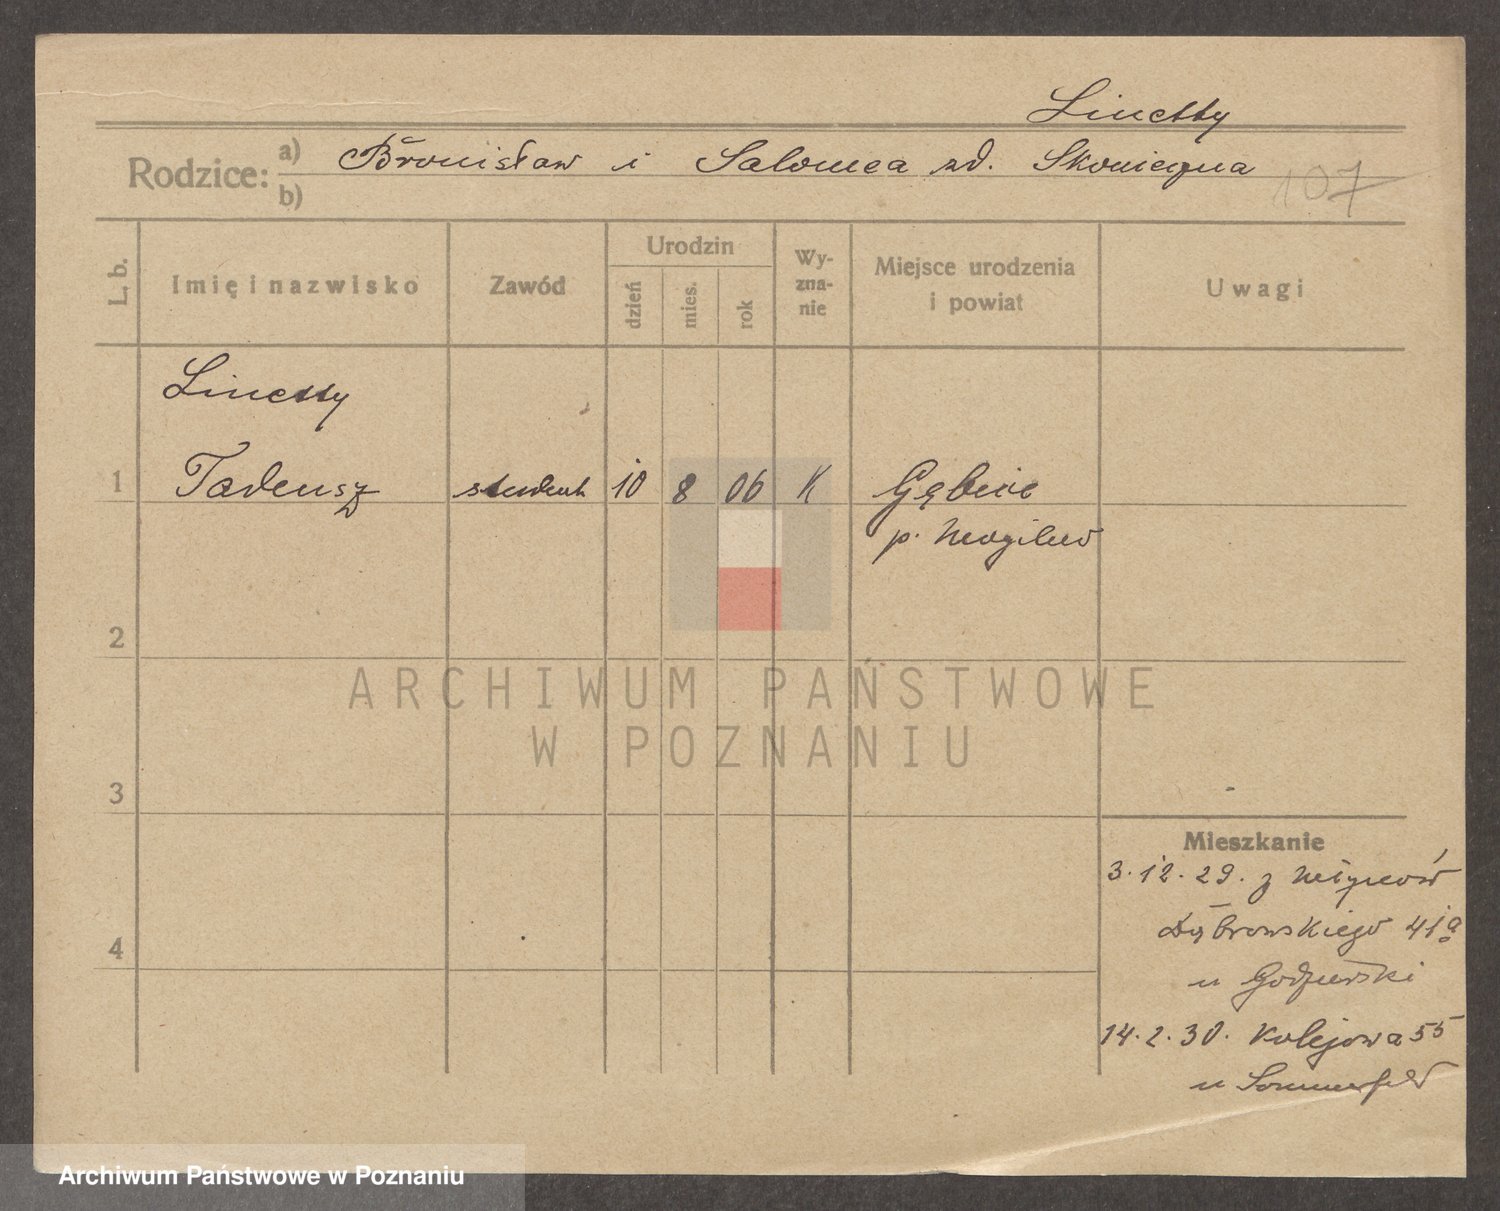 Linetty
Rodzice: a) Bronisław i Salomea zd. Skonieczna
b)
107
L. b. Imię i nazwisko Zawód Urodzin dzień mies. rok Wy-zna-nie Miejsce urodzenia i powiat Uwagi
Linetty
1 Tadeusz student 10 8 06 K Gębice
p. Mogilno
2
ARCHIWUM PAŃSTWOWE
W POZNANIU
3
Mieszkanie
3.12.29. z
Dąbrowskiego 41a
4
u
14.2.30. Kolejowa 55
u Sommerfeld
Archiwum Państwowe w Poznaniu